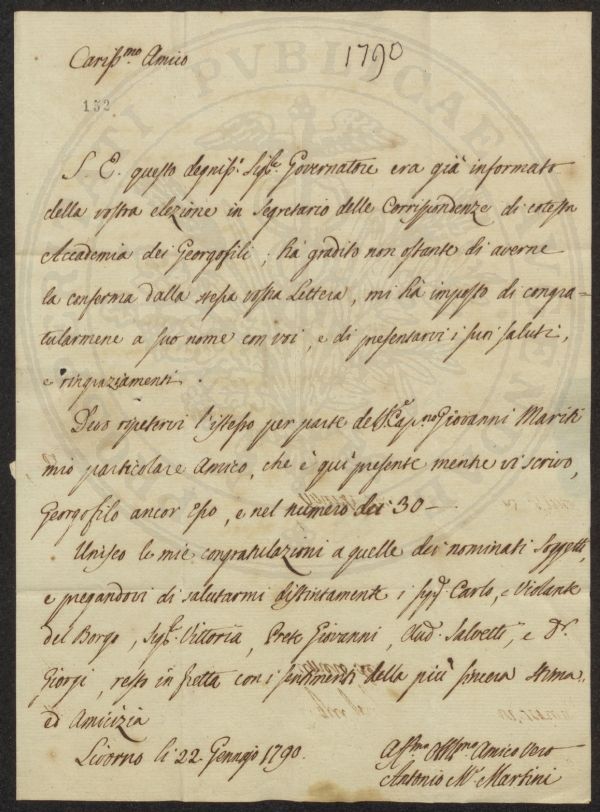 Cariss.mo Amico
1790
132
S. E. questo degniss.º Sig.re Governatore era già informato
della vostra elezione in Segretario delle Corrispondenze di cotessa
Accademia dei Georgofili; ha gradito non ostante di averne
la conferma dalla stessa vostra Lettera, mi ha imposto di congra=
tularmene a suo nome con voi, e di presentarvi i suoi saluti,
e ringraziamenti.
Devo ripetervi l'istesso per parte del Cap.no Giovanni Mariti
mio particolare Amico, che è quì presente mentre vi scrivo,
Georgofilo ancor Esso, e nel numero dei 30 —
Unisco le mie congratulazioni a quelle dei nominati Soggetti,
e pregandovi di salutarmi distintamente i Sigg.ri Carlo, e Violante
del Borgo, Sig.ra Vittoria, Prete Giovanni, Aud.e Salvetti, e D.r
Giorgi, resto in fretta con i sentimenti della più sincera stima
ed Amicizia
Livorno li 22. Gennajo 1790.
Aff.mo Amico Vero
Antonio M.a Martini